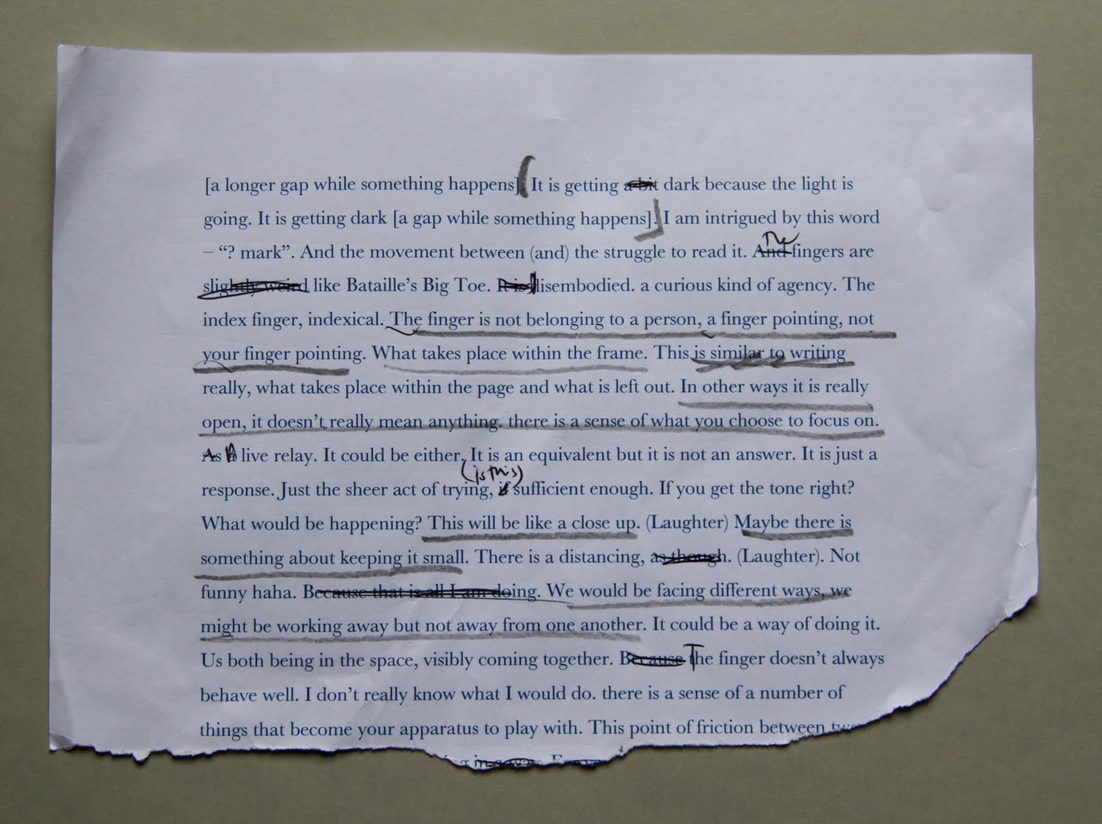 [a longer gap while something happens]. ( It is getting a bit dark because the light is
going. It is getting dark [a gap while something happens]. ] I am intrigued by this word
– “? mark”. And the movement between (and) the struggle to read it. And The fingers are
slightly weird like Bataille’s Big Toe. It is disembodied. a curious kind of agency. The
index finger, indexical. The finger is not belonging to a person, a finger pointing, not
your finger pointing. What takes place within the frame. This is similar to writing
really, what takes place within the page and what is left out. In other ways it is really
open, it doesn’t really mean anything. there is a sense of what you choose to focus on.
As A live relay. It could be either. It is an equivalent but it is not an answer. It is just a
(is this)
response. Just the sheer act of trying, if sufficient enough. If you get the tone right?
What would be happening? This will be like a close up. (Laughter) Maybe there is
something about keeping it small. There is a distancing, as though. (Laughter). Not
funny haha. Because that is all I am doing. We would be facing different ways, we
might be working away but not away from one another. It could be a way of doing it.
Us both being in the space, visibly coming together. Because The finger doesn’t always
behave well. I don’t really know what I would do. there is a sense of a number of
things that become your apparatus to play with. This point of friction between